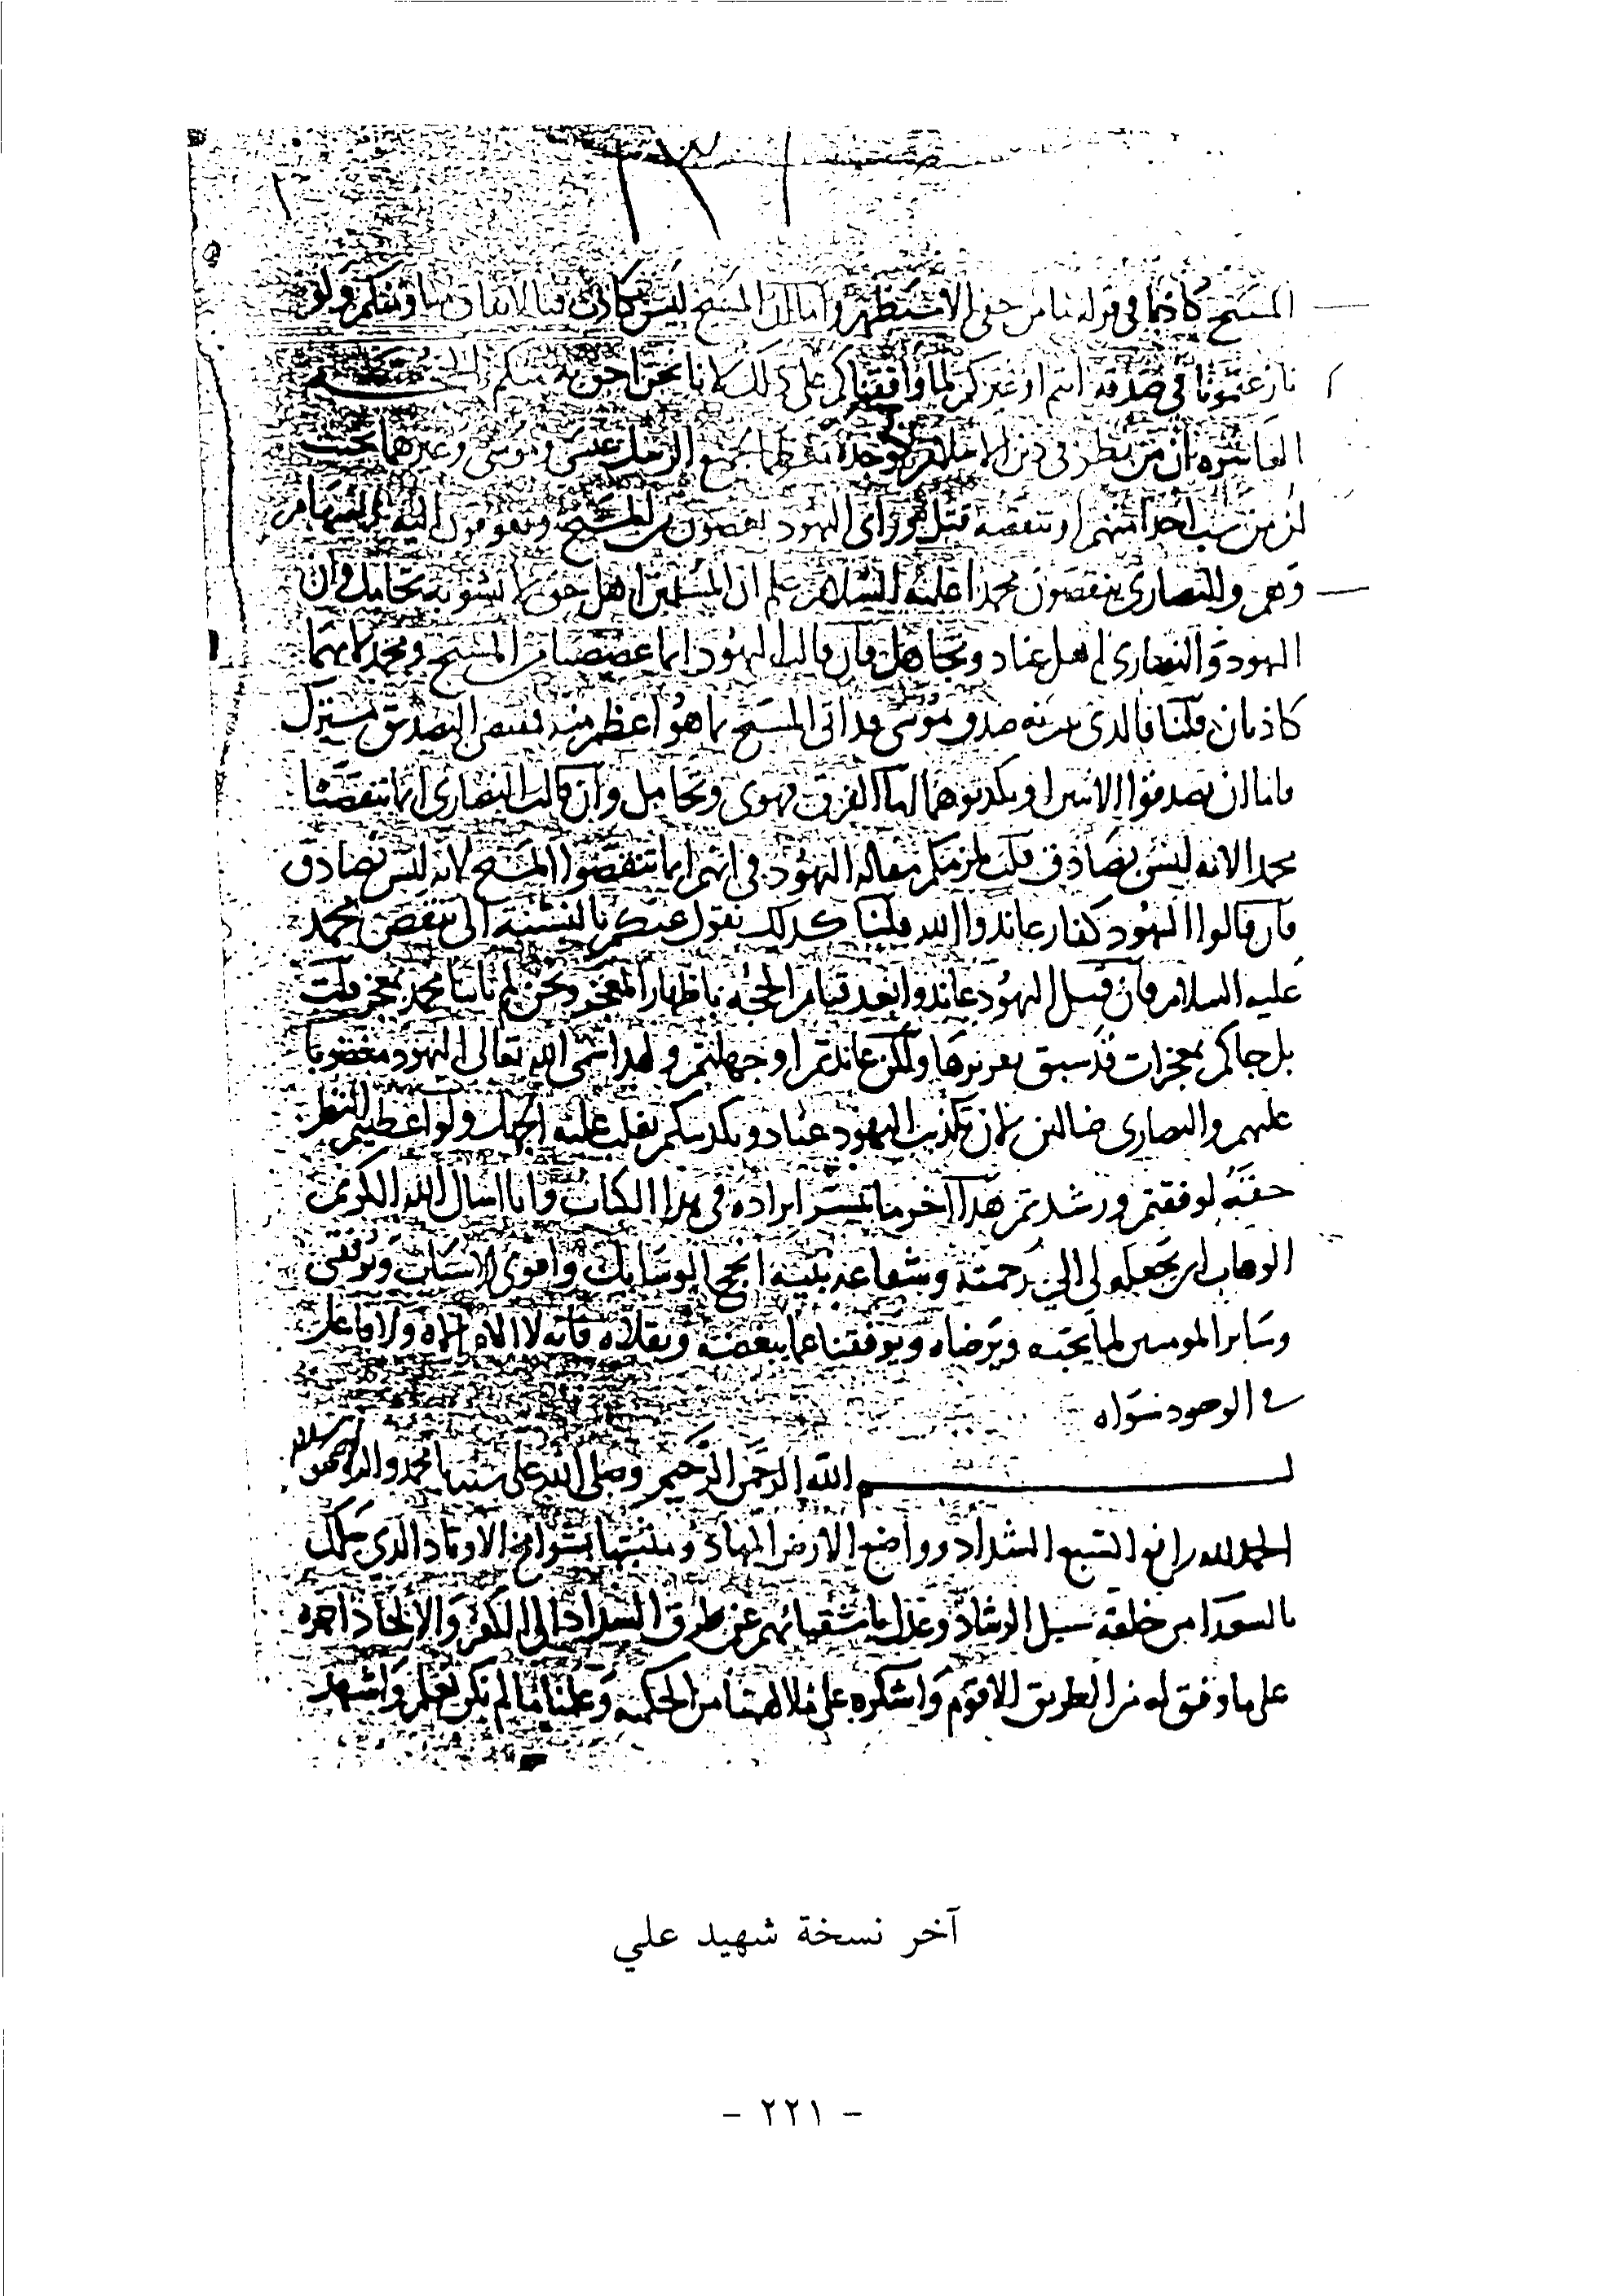 المسيح كاذبا في قوله نامن حقي الاستظهر واما ان المسيح ليس بكاذب فبالاتفاق منا ومنكم ولو
نازعتمونا في صدقه انتم او غيركم لما وافقناكم على ذلك لانا نحن احق به منكم
العاشره ان من نظر في دين الاسلام وجده معظما لجميع الرسل عيسى وموسى وغيرهما بحيث
ان من سب احدا منهم او تنقصه قتل وراى اليهود ينقصون المسيح
وهم والنصارى ينقصون محمدا عليه السلام علم ان المسلمين اهل حق لا تشوبه تحامل وان
اليهود والنصارى اهل عناد وتجاهل فان قالت اليهود انما غضضنا من المسيح ومحمد لانهما
كاذبان قلنا فالذي به صدق موسى قد اتى المسيح بما هو اعظم منه فمقتضى التصديق مشترك
فاما ان تصدقوا الاثنين او تكذبوهما اما الفرق فهوى وتحامل وان قالت النصارى انما تنقصنا
محمدا لانه ليس بصادق قلنا يلزمكم مقالة اليهود في انهم انما تنقصوا المسيح لانه ليس بصادق
فان قالوا اليهود كفار عاندوا الله قلنا كذلك نقول عنكم بالنسبة الى تنقص محمد
عليه السلام فان قيل اليهود عاندوا بعد قيام الحجه باظهار المعجز ونحن لم ياتنا محمد بمعجز قلت
بل جاكم بمعجزات قد سبق تقريرها ولكن عاندتم او جهلتم ولهذا سمى الله تعالى اليهود مغضوبا
عليهم والنصارى ضالين لان تكذيب اليهود عناد وتكذيبكم يغلب عليه الجهل ولو اعطيتم النظر
حقه لوفقتم ورشدتم هذا اخر ما تيسر ايراده في هذا الكتاب وانا اسال الله الكريم
الوهاب ان يجعله لي الى رحمته وشفاعة نبيه انجح الوسايل واقوى الاسباب ويوفقني
وساير المومنين لما يحبه ويرضاه ويوفقنا عما يبغضه ويقلاه فانه لا اله الا اياه ولا فاعل
في الوجود سواه
بسم الله الرحمن الرحيم وصلى الله على سيدنا محمد واله وصحبه وسلم
الحمد لله رافع السبع الشداد وواضع الارض المهاد ومثبتها بشوامخ الاوتاد الذي سلك
بالسعدا من خلقه سبيل الرشاد وعدل باشقيائهم عن طرق السداد الى الكفر والالحاد احمده
على ما وفق له من الطريق الاقوم واشكره على ما الهمنا من الحكمه وعلمنا ما لم نكن نعلم واشهد
آخر نسخة شهيد علي
- ٢٢١ -